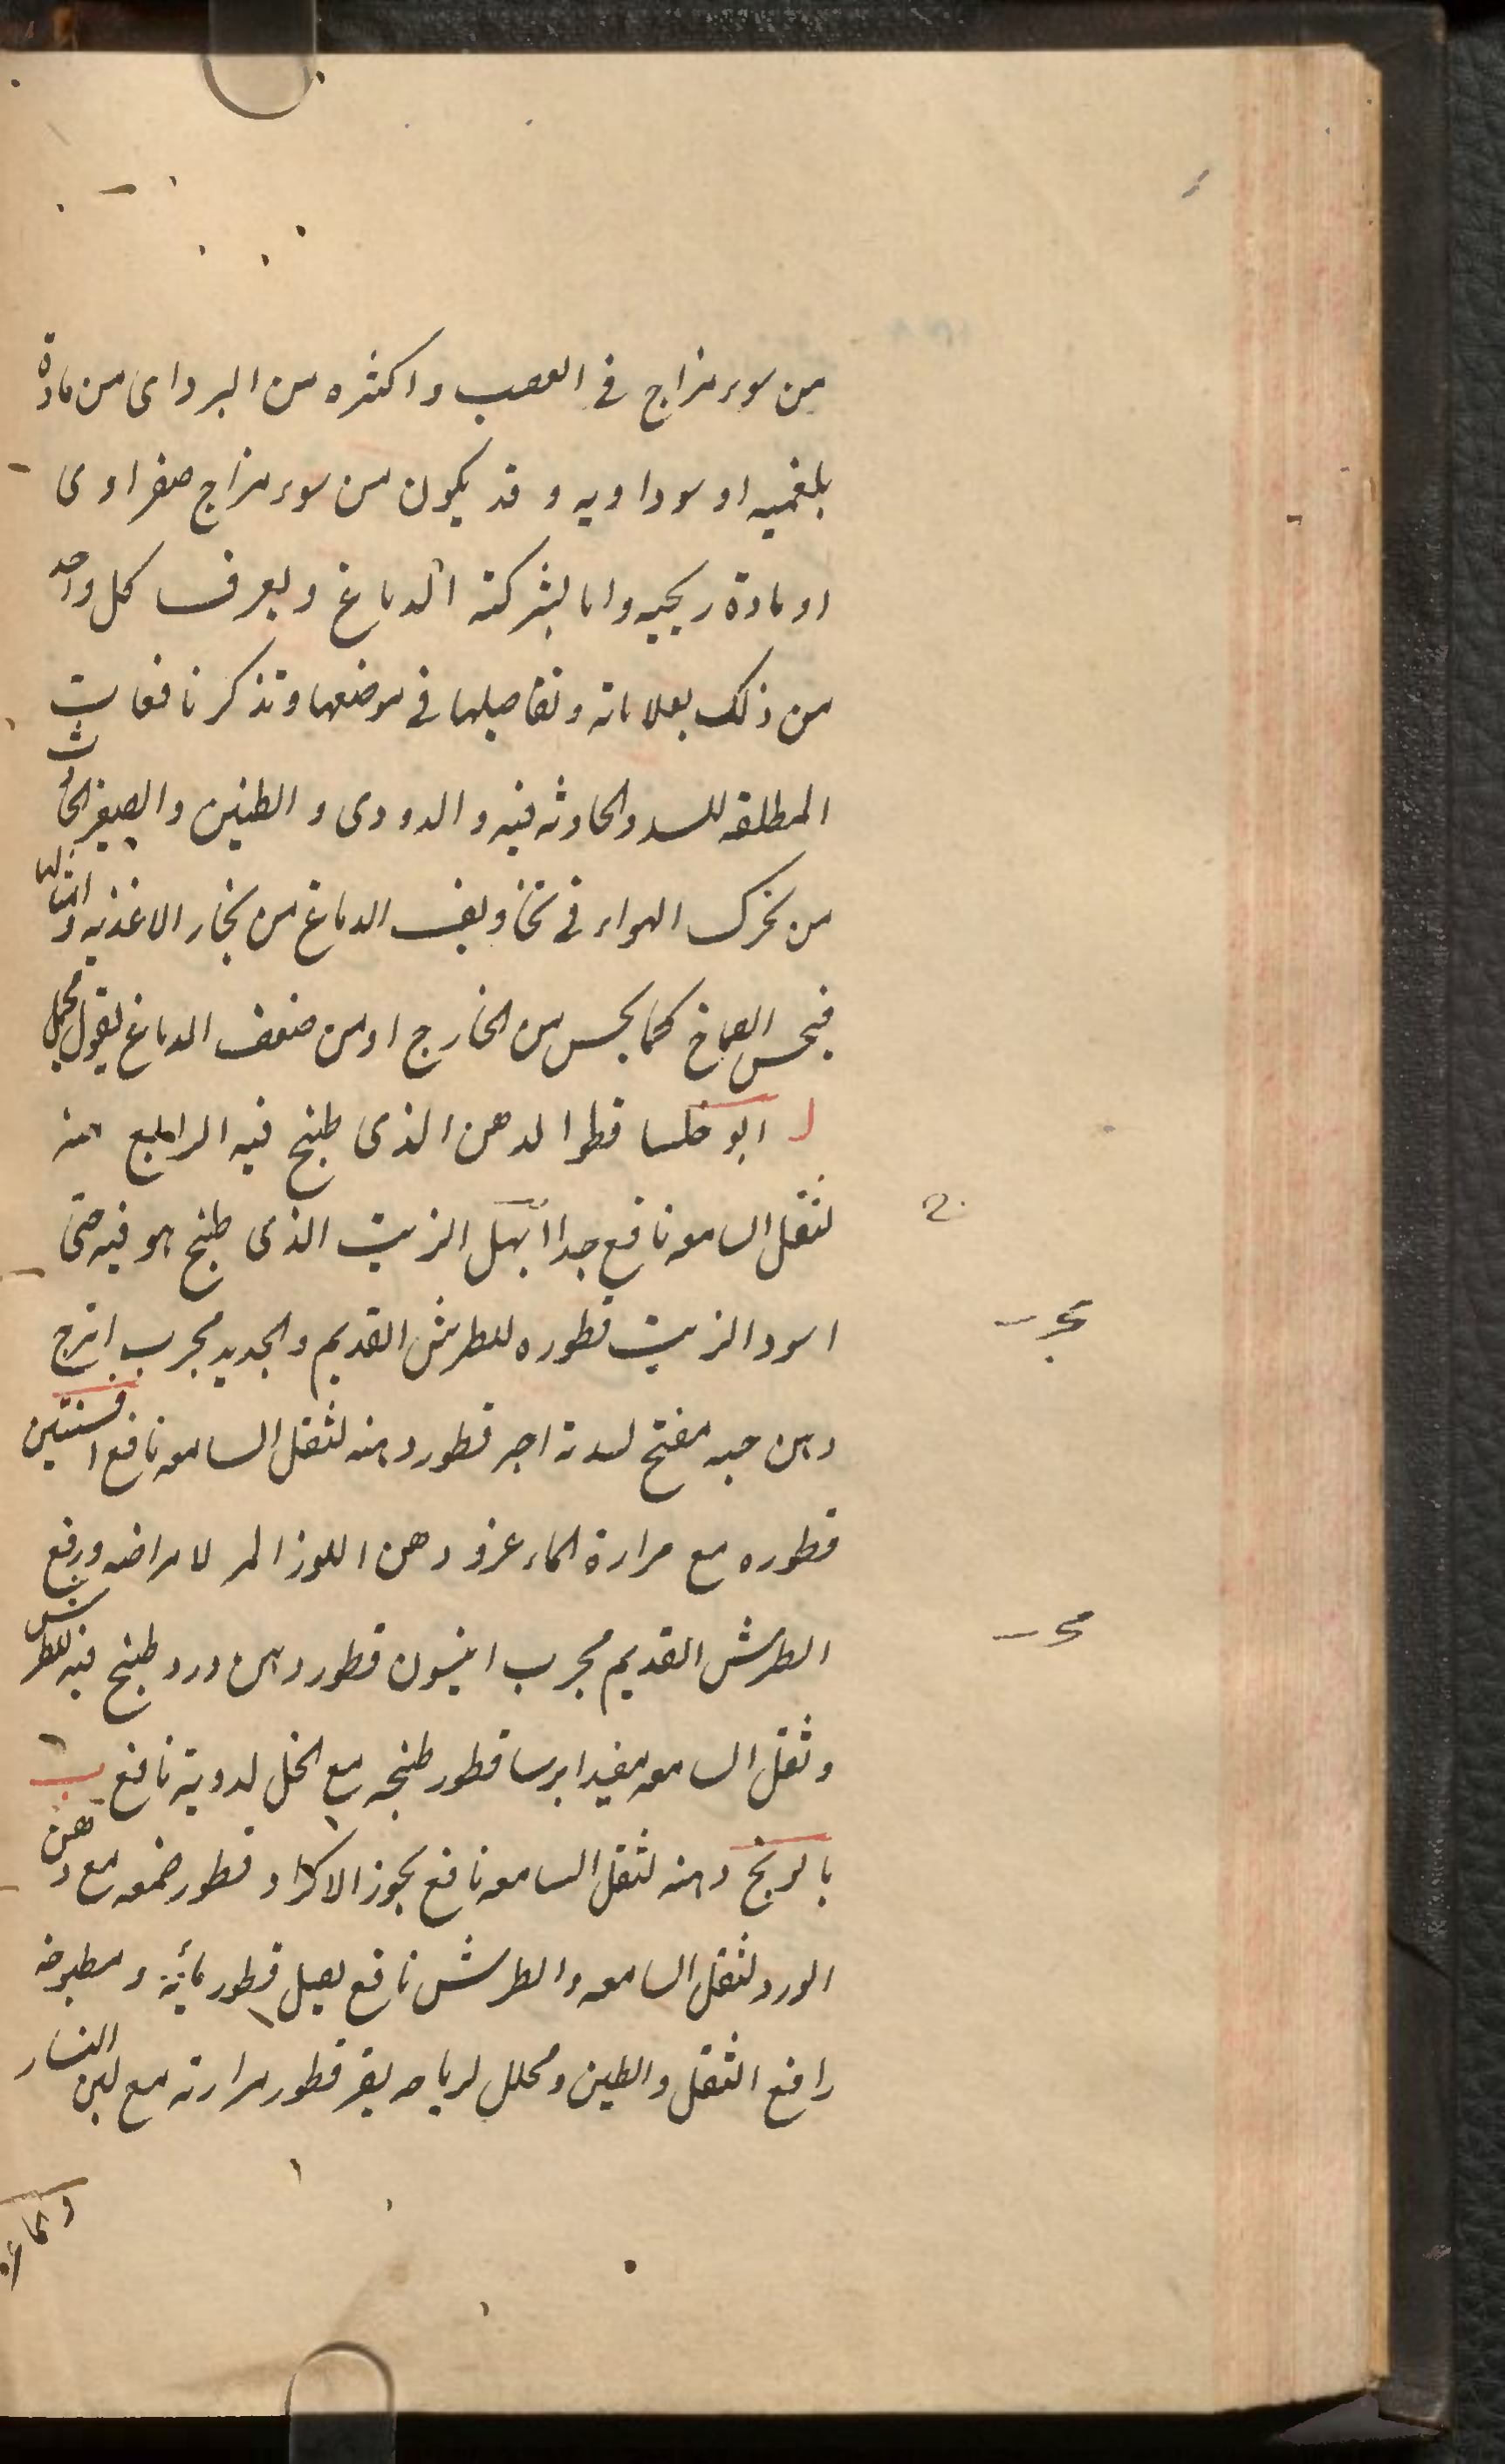 من سوء مزاج فى العصب واكثره من البرد اى من مادة
بلغميه او سوداويه و قد يكون من سوء مزاج صفراوى
او مادة ريحيه واما بشركة الدماغ ويعرف كل واحد
من ذلك بعلاماته وتفاصيلها فى موضعها وتذكر نافعات
المطلقه للسدد الحادثه فيه و الدودى و الطنين والصفير الحادث
من تحرك الهواء فى تجاويف الدماغ من بخار الاغذيه وامثالها
فيحس الصماخ كما يحس من الخارج او من ضعف الدماغ
ا ابو خلسا قطر الدهن الذى طبخ فيه الرابع منه
لثقل السامعه نافع جدا ابهل الزيت الذى طبخ هو فيه حتى
اسود الزيت قطوره للطرش القديم والجديد مجرب اترج
دهن حبه مفتح لسدته اجر قطور دهنه لثقل السامعه نافع افسنتين
قطوره مع مرارة الماعز و دهن اللوز المر لامراضه ورفع
الطرش القديم مجرب انيسون قطور دهن ورد طبخ فيه للطرش
وثقل السامعه مفيد ايرسا قطور طبخه مع الخل لدويه نافع ب
بابونج دهنه لثقل السامعه نافع بجوز الاكراد قطور صمغه مع دهن
الورد لثقل السامعه والطرش نافع بصل قطور مائه و مطبوخه
رافع الثقل والطنين ومحلل لرياحه بقر قطور مرارته مع لبن النساء
مجـ
مجـ